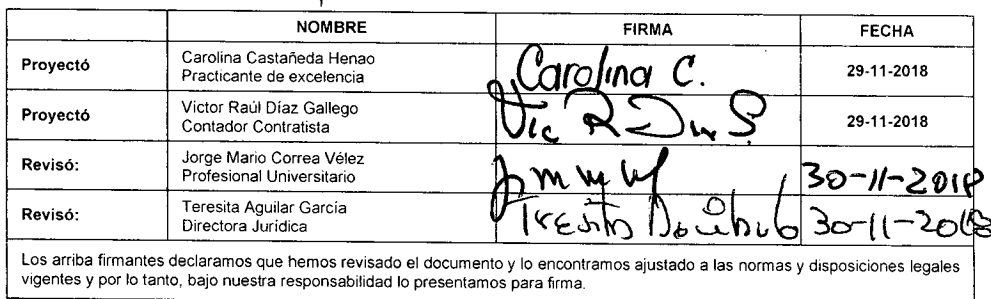 NOMBRE FIRMA FECHA
Proyectó Carolina Castañeda Henao
Practicante de excelencia Carolina C. 29-11-2018
Proyectó Victor Raúl Díaz Gallego
Contador Contratista 29-11-2018
Revisó: Jorge Mario Correa Vélez
Profesional Universitario 30-11-2018
Revisó: Teresita Aguilar García
Directora Jurídica 30-11-2018
Los arriba firmantes declaramos que hemos revisado el documento y lo encontramos ajustado a las normas y disposiciones legales
vigentes y por lo tanto, bajo nuestra responsabilidad lo presentamos para firma.